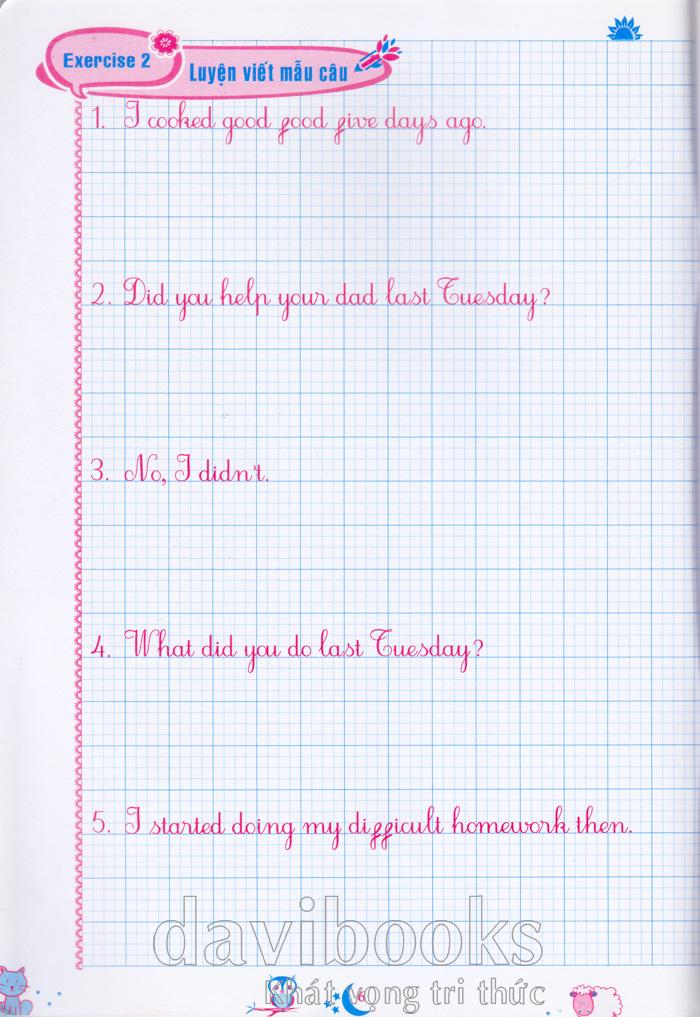 Exercise 2
Luyện viết mẫu câu
1. I cooked good food five days ago.
2. Did you help your dad last Tuesday?
3. No, I didn't.
4. What did you do last Tuesday?
5. I started doing my difficult homework then.
davibooks
Khát vọng tri thức
6